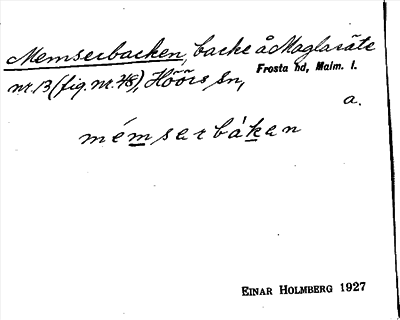 Memserbacken, backe å Maglasäte
nr. 13 (fig. nr. 48), Höörs sn,
Frosta hd, Malm. l.
a.
mémsarbákan
EINAR HOLMBERG 1927